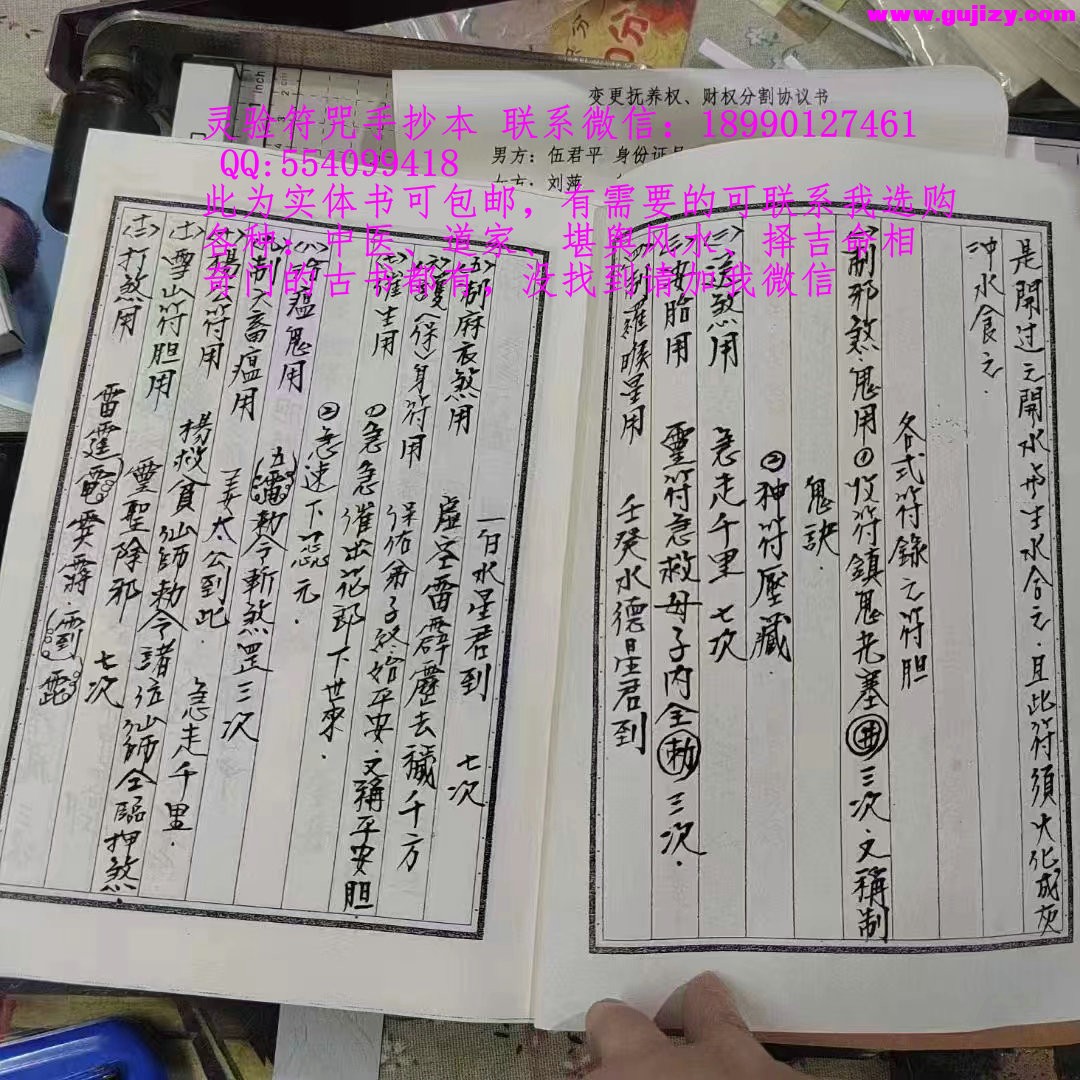 www.gujizy.com
变更抚养权、财权分割协议书
灵验符咒手抄本 联系微信：18990127461
QQ:554099418
男方：伍君平 身份证号
女方：刘萍
此为实体书可包邮，有需要的可联系我选购
各种：中医、道家、堪舆风水、择吉命相
奇门的古书都有，没找到请加我微信
是開过之開水与生水合之．且此符須火化成灰
冲水食之
各式符錄之符胆
制邪煞鬼用①收符鎮鬼 三次．文稱制
鬼訣．
②神符壓藏
送煞用 急走千里 七次
(三)安胎用 靈符急救母子內全(勅)三次．
(四)制羅睺星用 壬癸水德星君到
一白水星君到 七次
(五)都麻衣煞用 虛空雷霹靂去穢千方
護(保)身符用 保佑弟子終始平安．文稱平安胆
催生用 ①急急催出花郎下世來．
②急速下 元．
(八)治瘟鬼用
制六畜瘟用 (五雷)勅令斬煞罡三次
楊公符用 姜太公到此． 急走千里．
(十一)雪山符胆用 楊救貧仙師勅令諸位仙師全臨押煞
(十二)打煞用 靈聖除邪 七次
雷霆